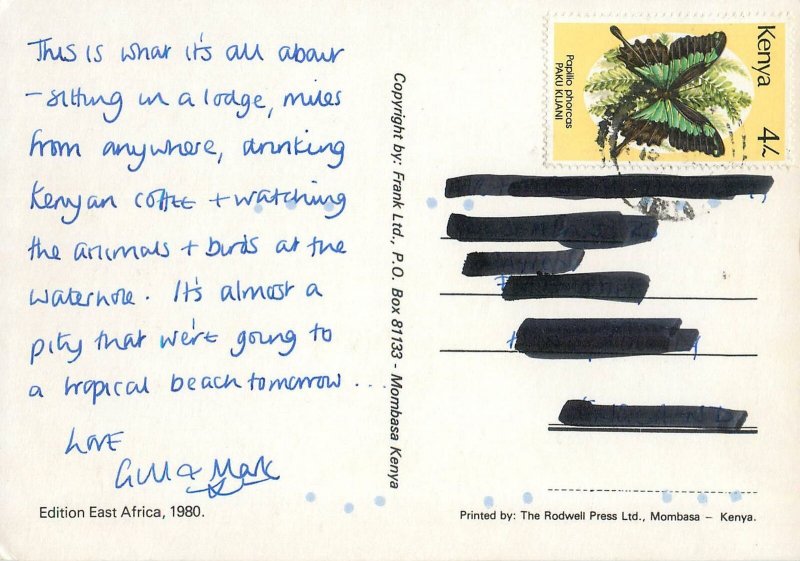 This is what it's all about
- sitting in a lodge, miles
from anywhere, drinking
Kenyan coffee + watching
the animals + birds at the
waterhole. It's almost a
pity that we're going to
a tropical beach tomorrow ...
Love
Gill & Mark
Edition East Africa, 1980.
Copyright by: Frank Ltd., P.O. Box 81133 - Mombasa Kenya
Kenya
4/-
Papilio phorcas
PAKU KIJANI
Printed by: The Rodwell Press Ltd., Mombasa – Kenya.